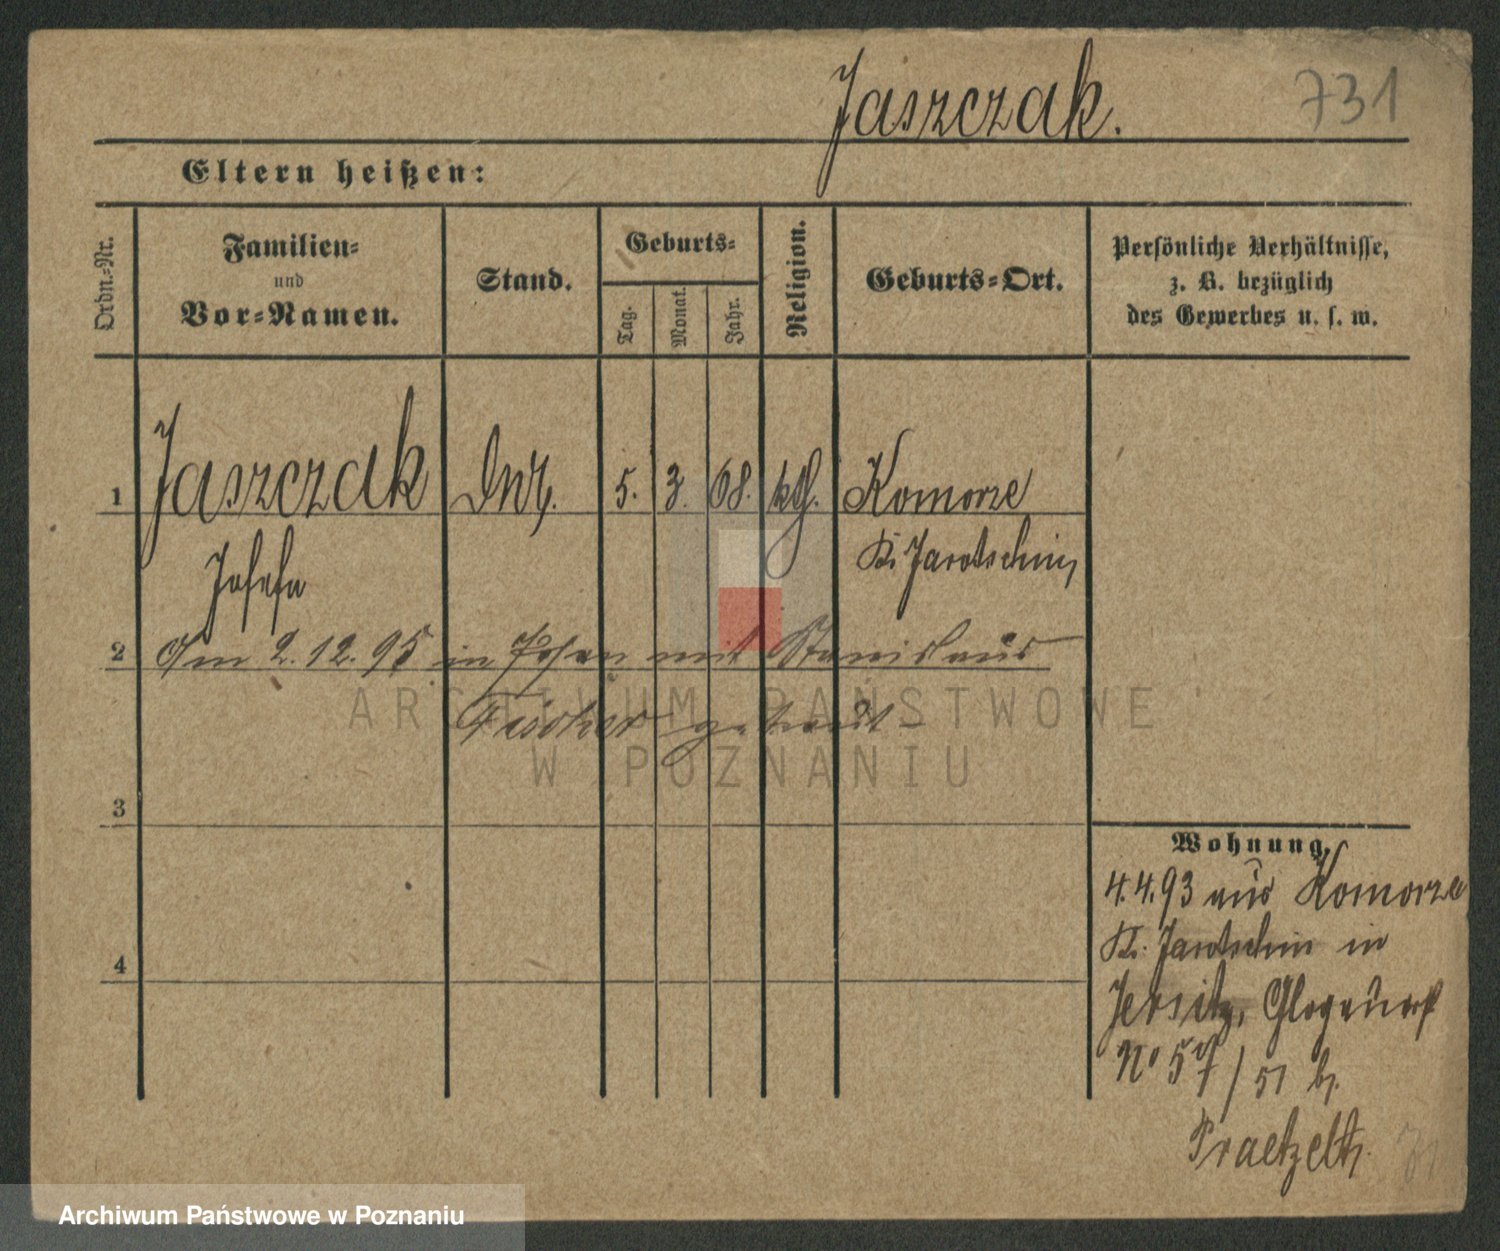 Jaszczak.
731
Eltern heißen:
Ordn.-Nr.
Familien-
und
Vor-Namen.
Stand.
Geburts-
Tag.
Monat.
Jahr.
Religion.
Geburts-Ort.
Persönliche Verhältnisse,
z. B. bezüglich
des Gewerbes u. s. w.
1 Jaszczak 5. 3. 68. kth. Komorze
Josefa
Kr. Jarotschin
2 Am 2.12.95 in Posen mit Stanislaus
Fischer getraut
ARCHIWUM PAŃSTWOWE
W POZNANIU
3
4
Wohnung.
4.4.93 aus Komorze
Kr. Jarotschin in
Jersitz,
No 57/51 b.
Praetzelt
Archiwum Państwowe w Poznaniu